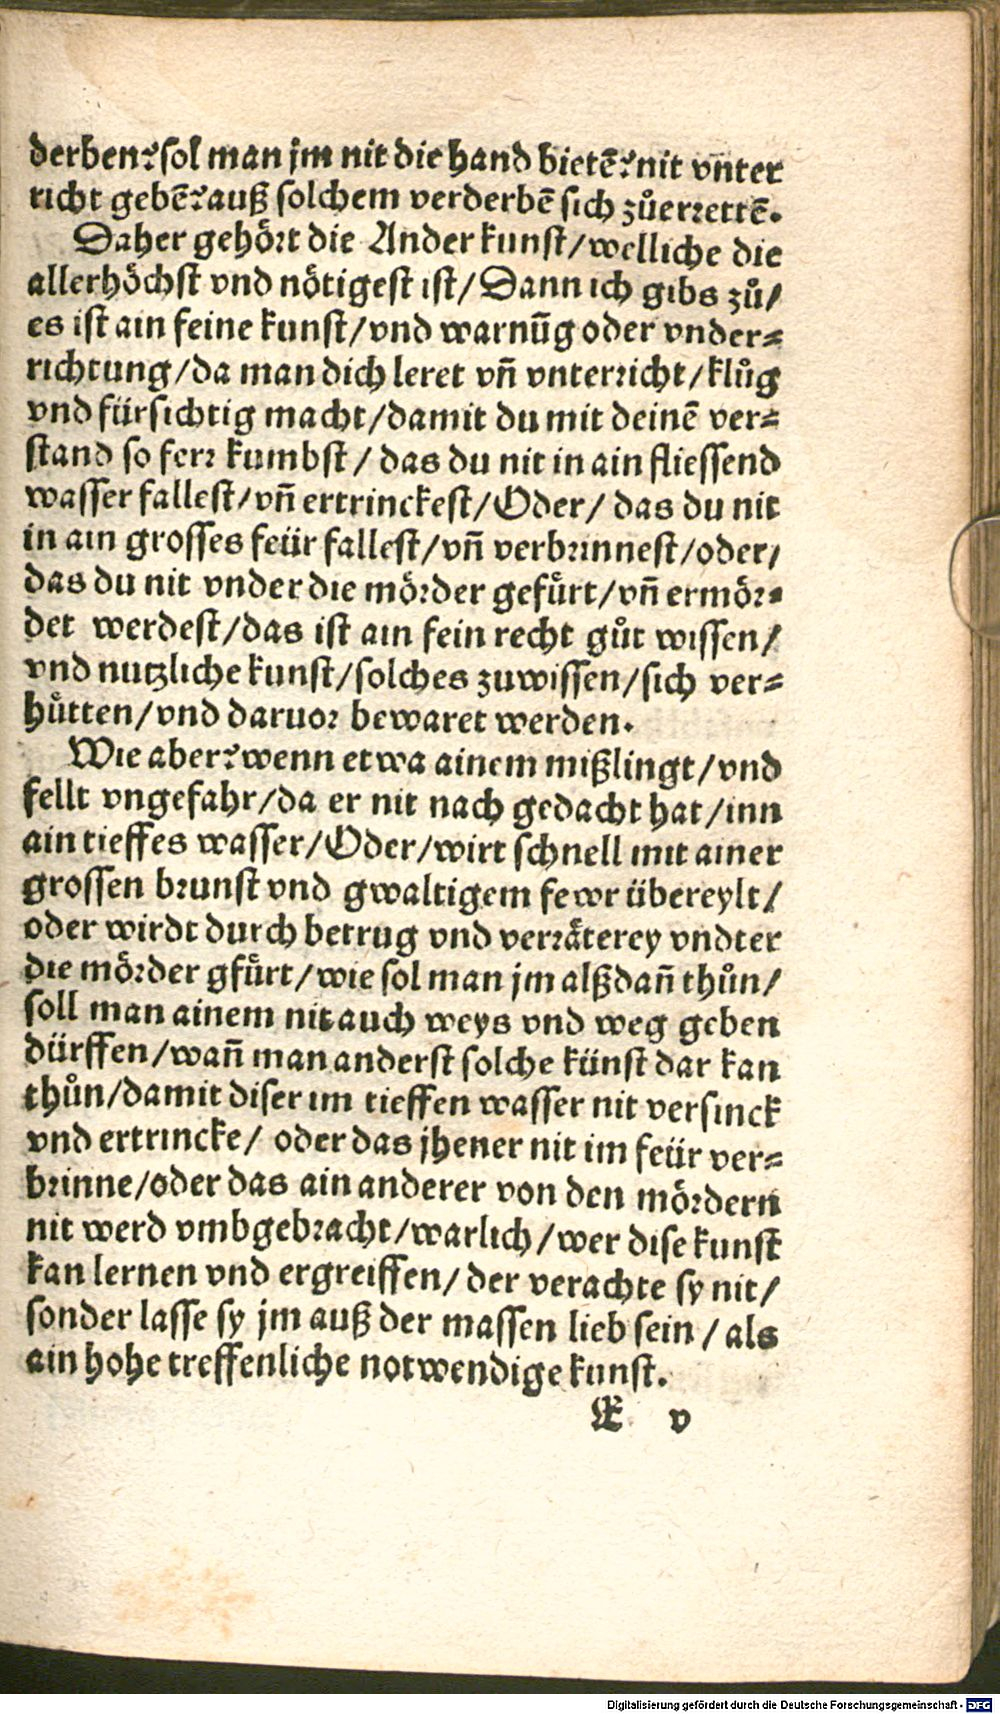 derben? sol man jm nit die hand bietē? nit vnter
richt gebē? auß solchem verderbē sich zůerretē.
Daher gehört die Ander kunst/ welliche die
allerhöchst vnd nötigest ist/ Dann ich gibs zů/
es ist ain feine kunst/ vnd warnūg oder vnder⸗
richtung/ da man dich leret vñ vnterricht/ klůg
vnd fürsichtig macht/ damit du mit deinē ver⸗
stand so ferr kumbst/ das du nit in ain fliessend
wasser fallest/ vñ ertrinckest/ Oder/ das du nit
in ain grosses feür fallest/ vñ verbrinnest/ oder/
das du nit vnder die mörder gefůrt/ vñ ermör⸗
det werdest/ das ist ain fein recht gůt wissen/
vnd nutzliche kunst/ solches zuwissen/ sich ver⸗
hütten/ vnd daruor bewaret werden.
Wie aber? wenn etwa ainem mißlingt/ vnd
fellt vngefahr/ da er nit nach gedacht hat/ inn
ain tieffes wasser/ Oder/ wirt schnell mit ainer
grossen brunst vnd gwaltigem fewr übereylt/
oder wirdt durch betrug vnd verräterey vndter
die mörder gfůrt/ wie sol man jm alßdañ thůn/
soll man ainem nit auch weys vnd weg geben
dürffen/ wañ man anderst solche künst dar kan
thůn/ damit diser im tieffen wasser nit versinck
vnd ertrincke/ oder das jhener nit im feür ver⸗
brinne/ oder das ain anderer von den mördern
nit werd vmbgebracht/ warlich/ wer dise kunst
kan lernen vnd ergreiffen/ der verachte sy nit/
sonder lasse sy jm auß der massen lieb sein/ als
ain hohe treffenliche notwendige kunst.
E v
Digitalisierung gefördert durch die Deutsche Forschungsgemeinschaft - DFG